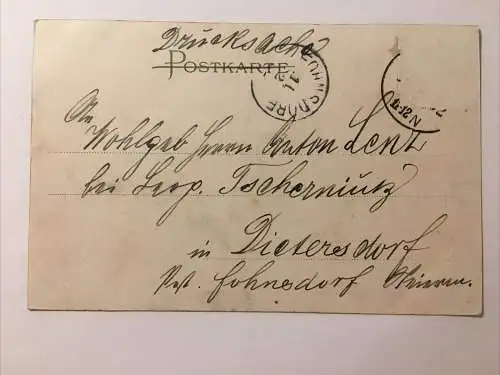 Drucksache
POSTKARTE
FOHNSDORF
An
Wohlgeb Herrn Anton Lenz
bei Leop. Tscherniutz
in Dietersdorf
Pst. Fohnsdorf Steierm.